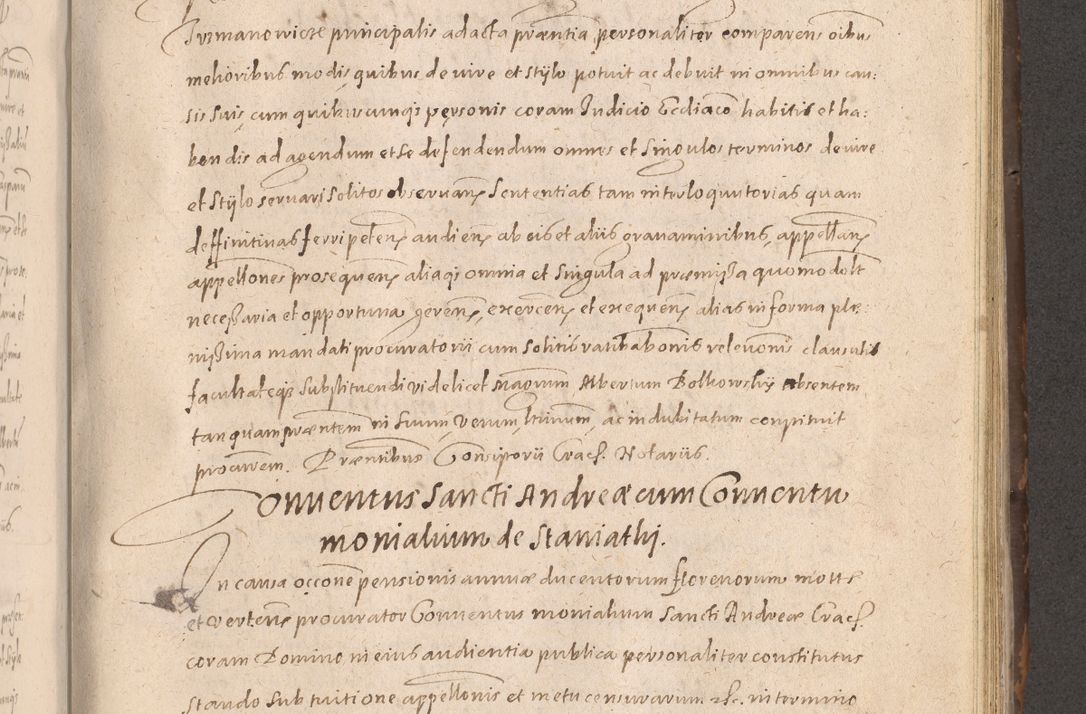 Iurmanowicze principalis ad acta præntia personaliter comparens oibus
melioribus modis quibus de iure et stÿlo potuit ac debuit in omnibus cau:
sis suis cum quibuscunqȝ personis coram Iudicio Ecdiaco habitis et ha:
bendis ad agendum et se defendendum omnes et singulos terminos de iure
et stÿlo seruari solitos obseruanȝ sententias tam interloqutorias quam
deffinitiuas ferri petenȝ audienȝ ab eis et aliis grauaminibus appellanȝ
appellones prosequenȝ aliaqȝ omnia et singula ad præmißa quomodolt
neceßaria et opportuna gerenȝ, exercenȝ et exequenȝ alias in forma ple:
nißima mandati procuratorii cum solitis ratihabonis releuonis clausulis
facultateqȝ substituendi videlicet Magrum Albertum Bolkowskÿ absentem
tanquam præntem in suum, verum, ltimum, ac indubitatum constituit
procurem. Præntibus Consistorii Cracȝ. Notariis.
Conuentus Sancti Andreæ cum Conuentu
monialium de Staniathj.
In causa occone pensionis annuæ ducentorum florenorum motte
et vertentȝ procurator Conuentus monialium Sancti Andreæ Cracȝ.
coram Domino in eius audientia publica personaliter constitutus
stando sub tuitione appellonis et metu censurarum etc. in termino